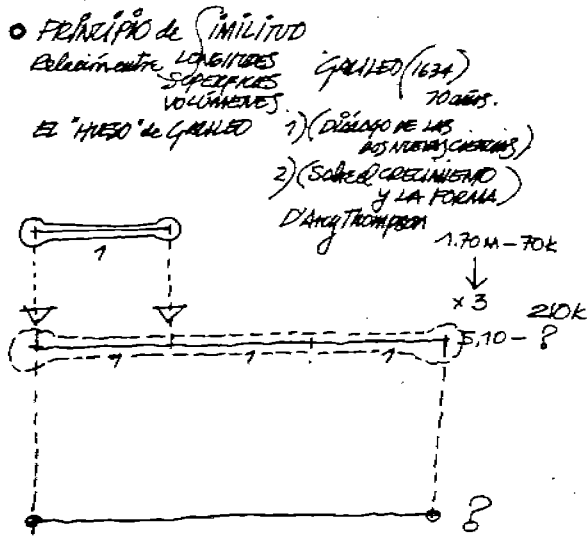 o PRINCIPIO de SIMILITUD
Relación entre LONGITUDES
SUPERFICIES
VOLÚMENES
GALILEO (1634)
70 años.
El "HUESO" de GALILEO
1) (DIÁLOGO DE LAS
DOS NUEVAS CIENCIAS)
2) (Sobre el CRECIMIENTO
Y LA FORMA)
D'Arcy Thompson
1.70 M - 70K
x 3
210K
5,10 - ?
1
1 1 1
?